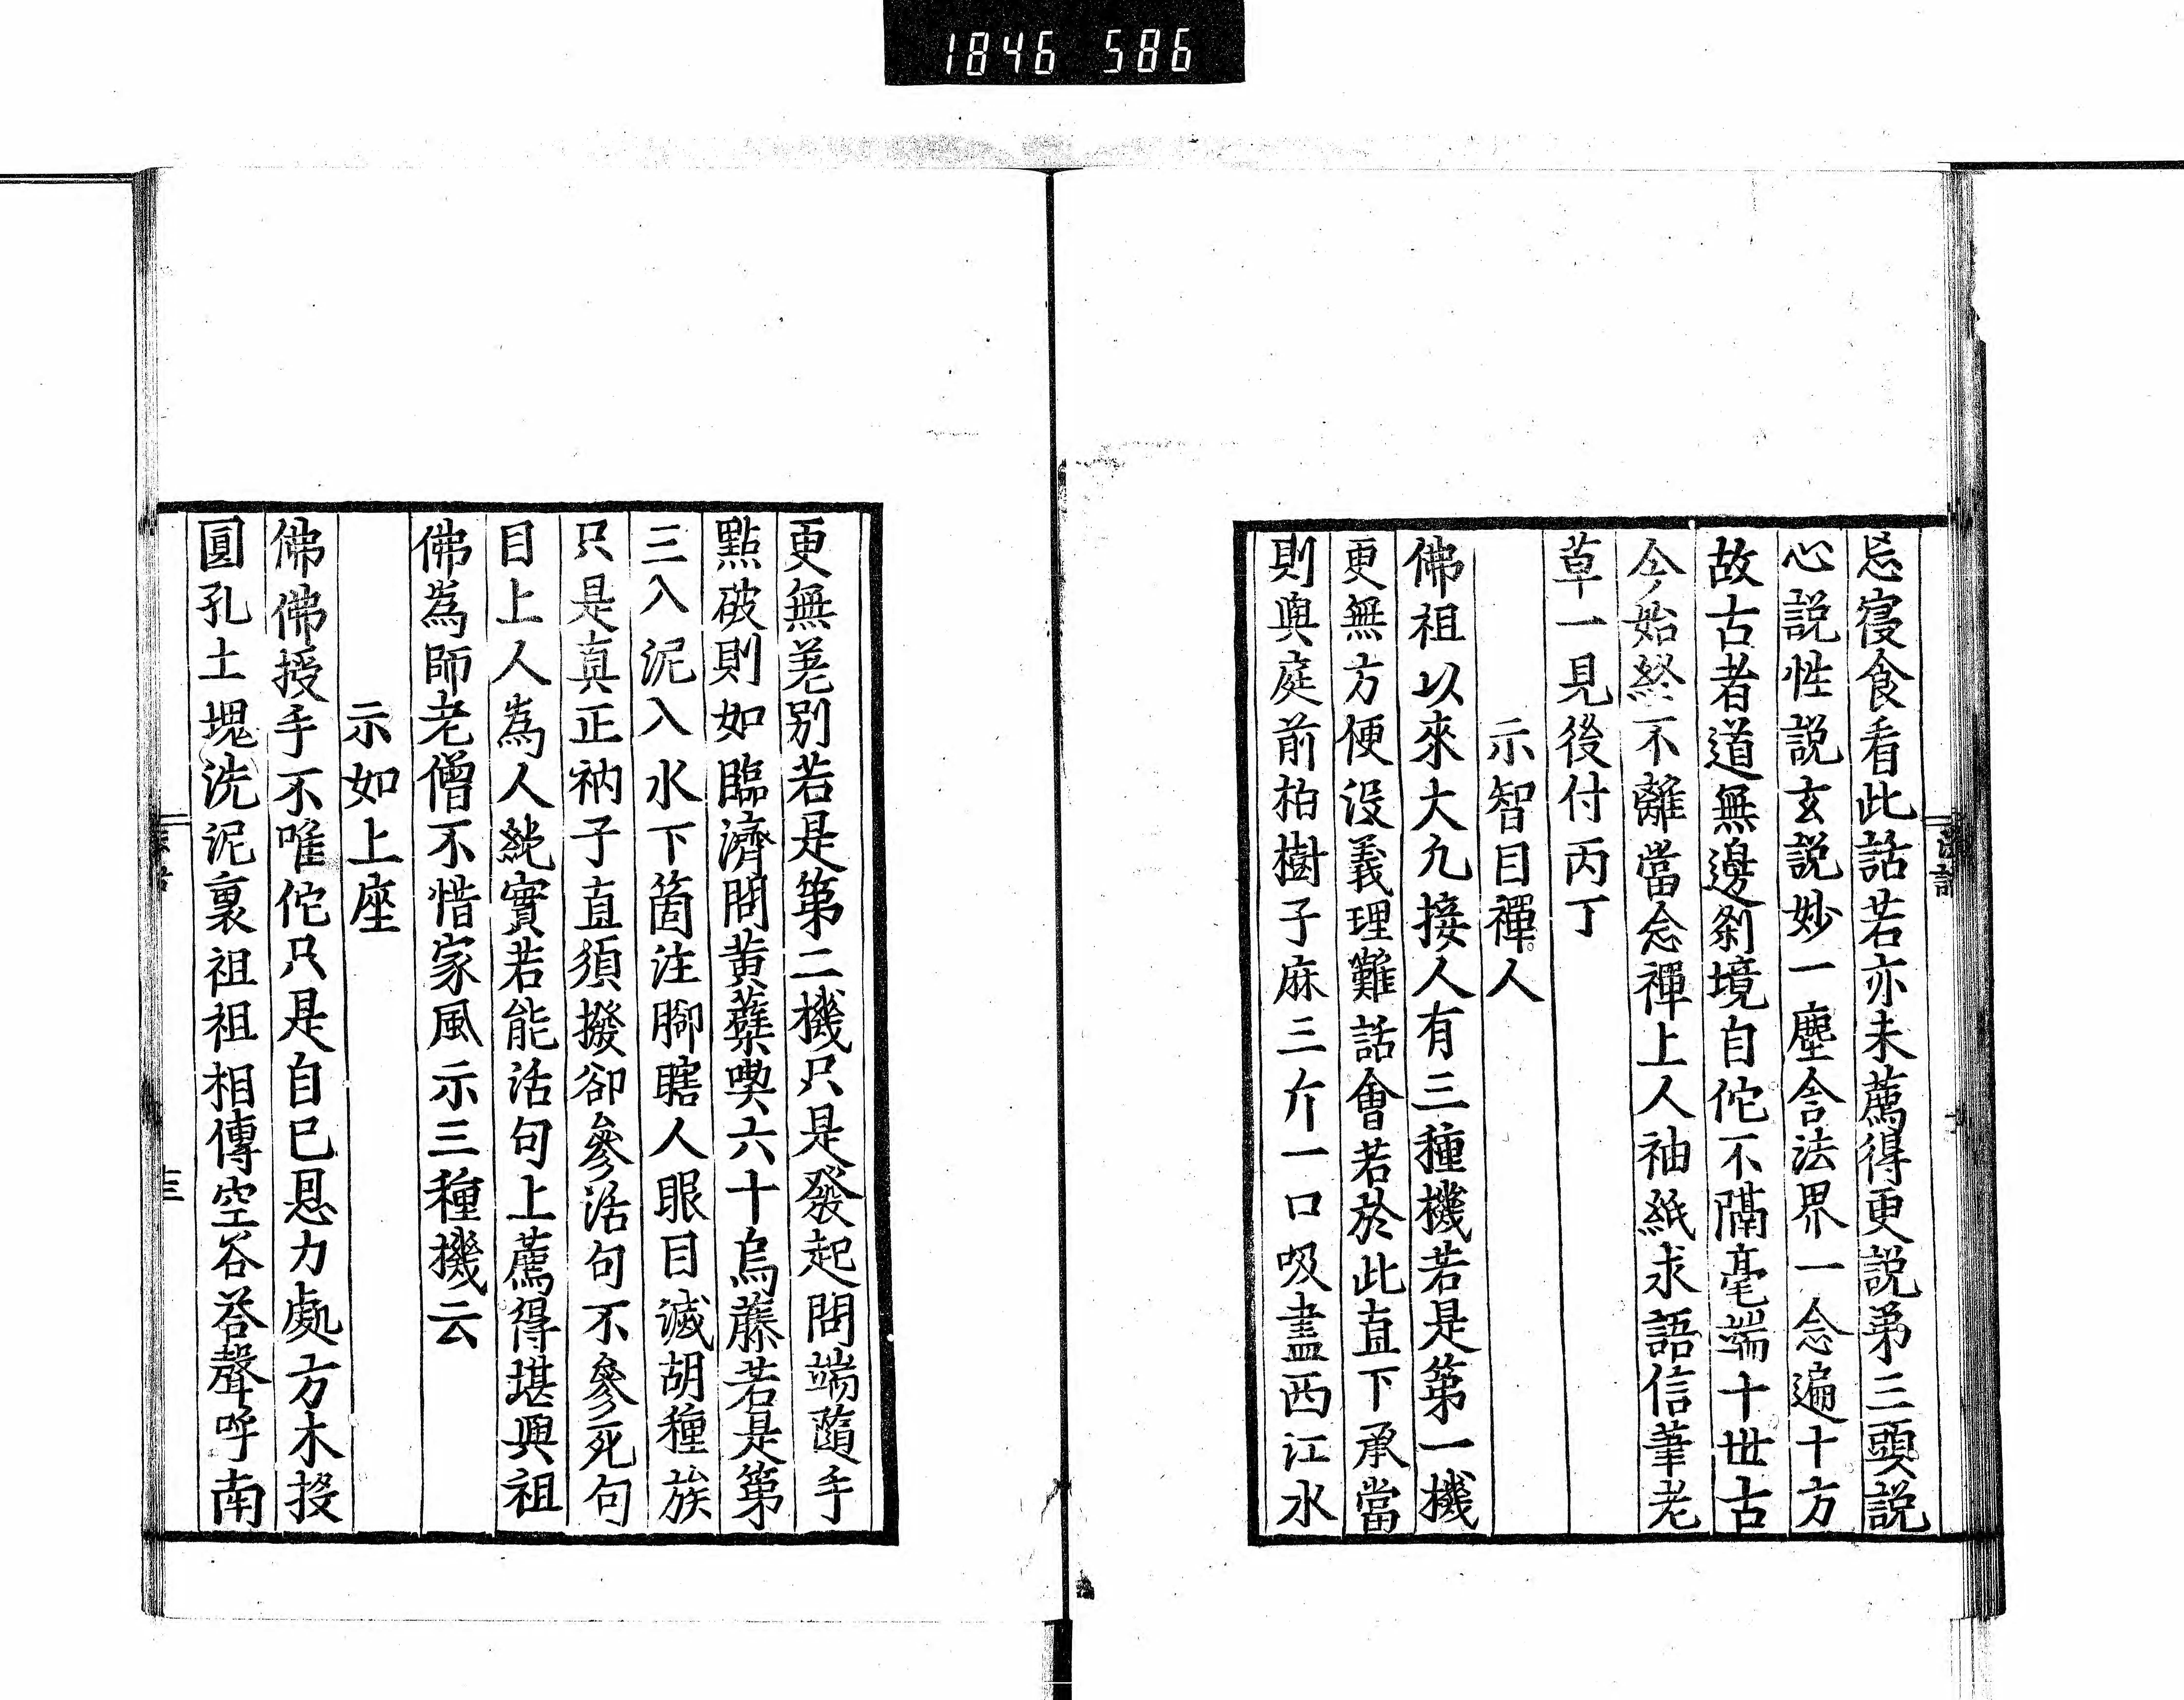 1846 586
忘寝食看此話若亦未薦得更説第三頭説
心説性説玄説妙一塵含法界一念遍十方
故古者道無邊刹境自佗不隔毫端十世古
今始終不離當念禪上人袖紙求語信筆老
草一見後付丙丁
示智目禪人
佛祖以來大凢接人有三種機若是第一機
更無方便没義理難話會若於此直下承當
則與庭前柏樹子麻三斤一口吸盡西江水
更無差別若是第二機只是發起問端隨手
點破則如臨濟問黄蘗喫六十烏藤若是第
三入泥入水下箇注脚瞎人眼目滅胡種族
只是真正衲子直須撥卻參活句不參死句
目上人為人純實若能活句上薦得堪與祖
佛為師老僧不惜家風示三種機云
示如上座
佛佛授手不唯佗只是自已恩力處方木投
圓孔土塊洗泥裏祖祖相傳空谷荅聲呼南